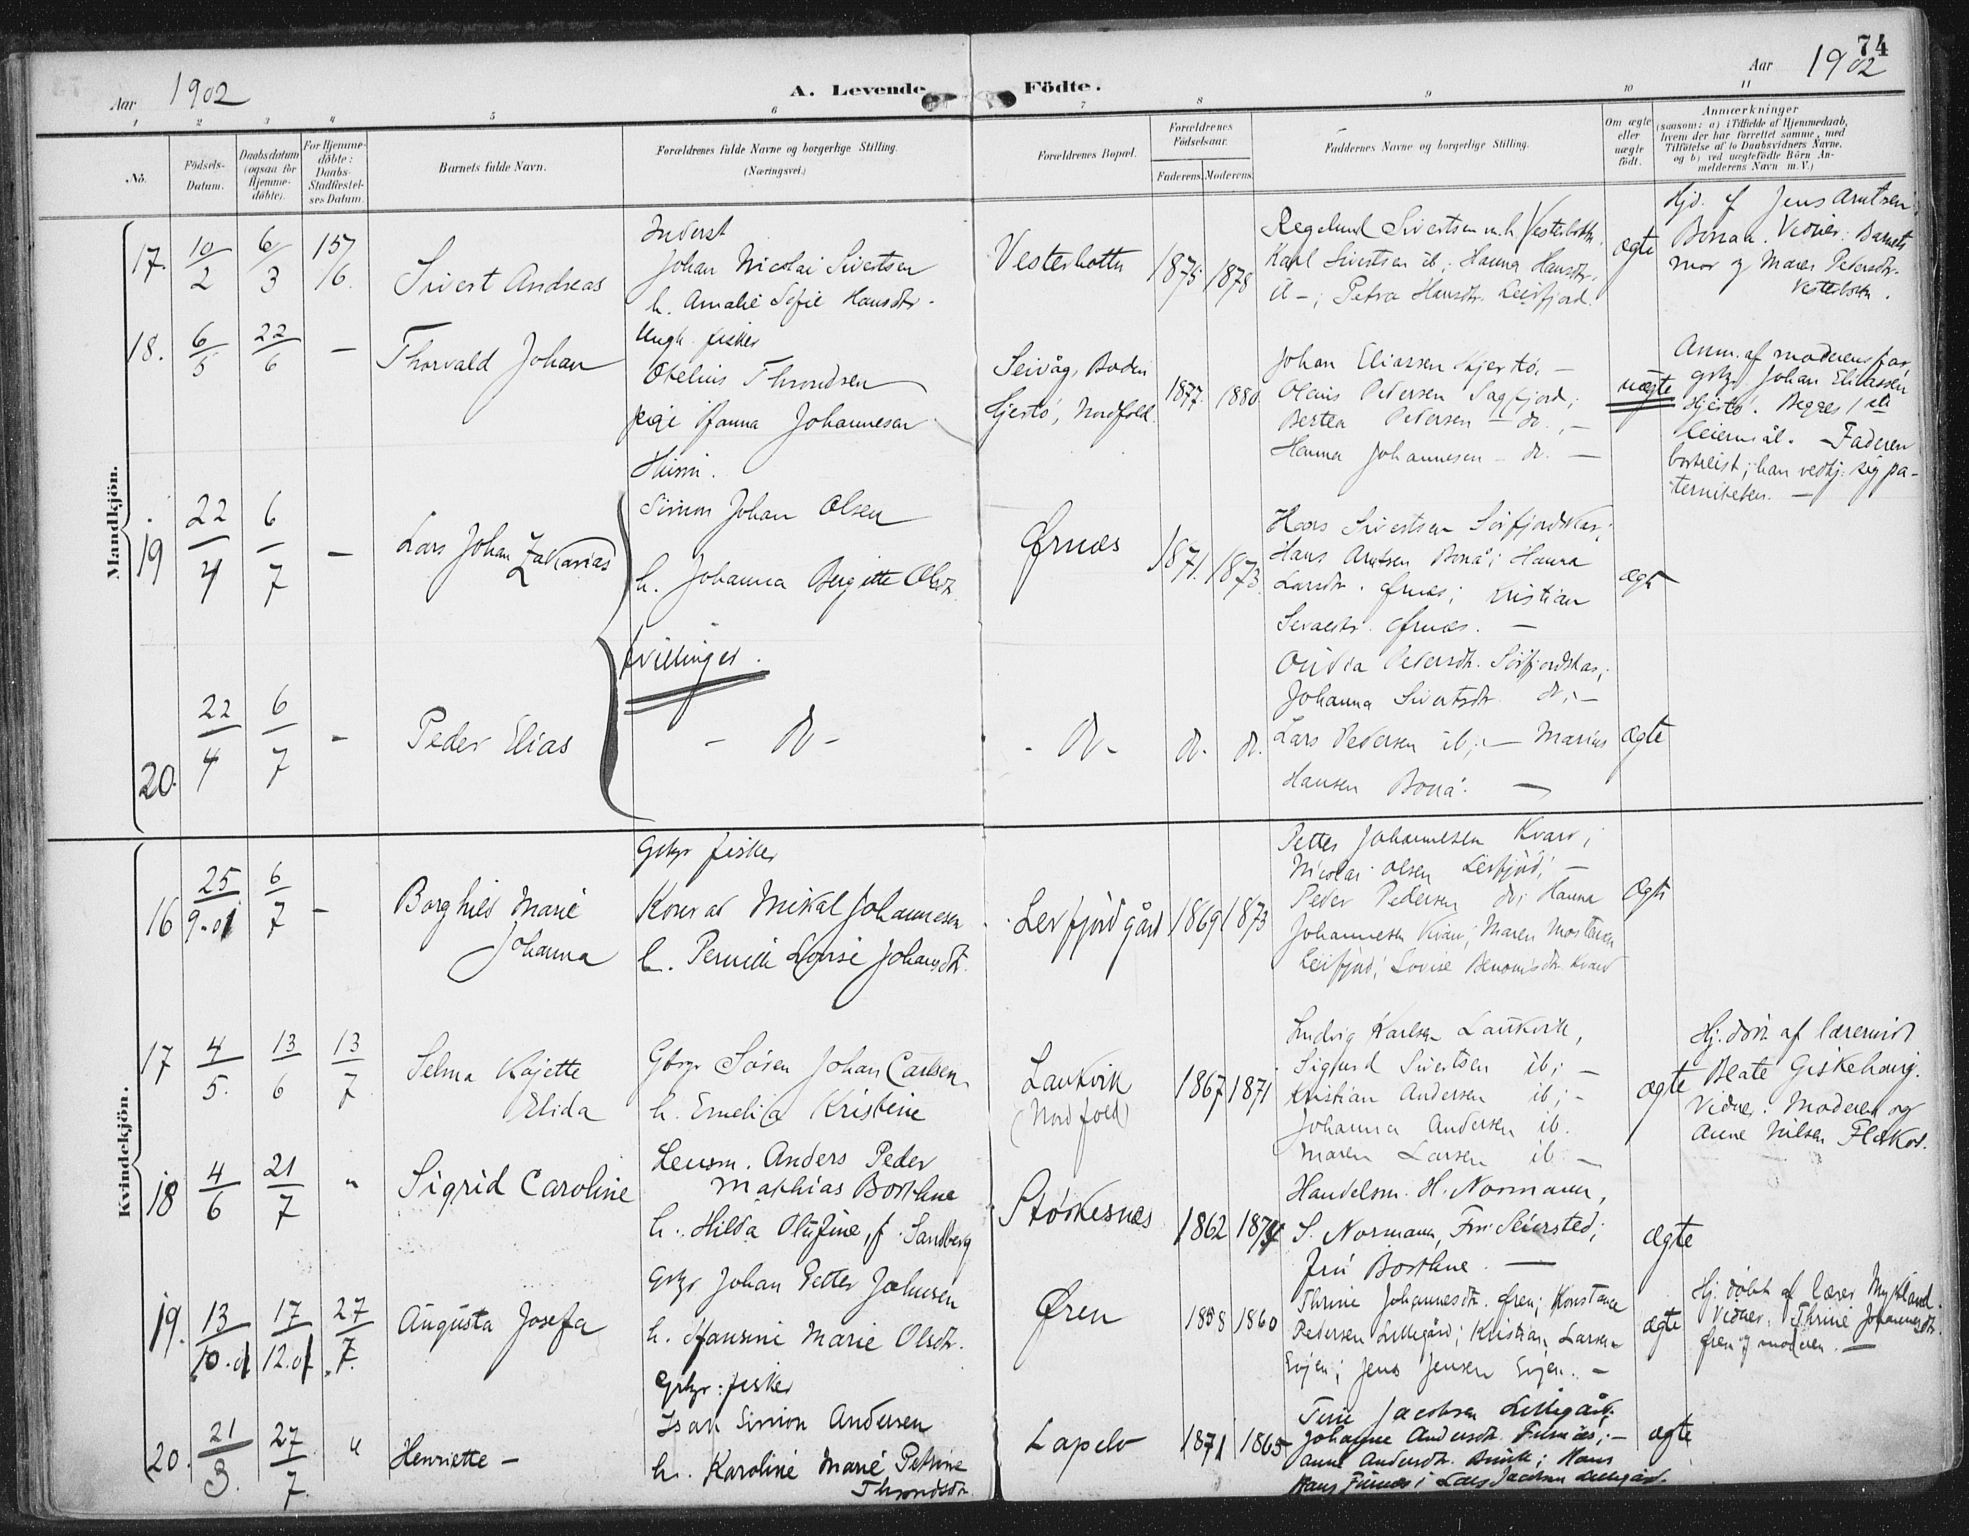 74
Aar 1902
A. Levende Födte.
Aar 1902
1 2 3 4 5 6 7 8 9 10 11
No.
Födsels-Datum.
Daabsdatum (ogsaa for Hjemme-döbte).
For Hjemme-döbte: Daabs-Stadfestel-ses Datum.
Barnets fulde Navn.
Forældrenes fulde Navne og borgerlige Stilling.
(Næringsvei.)
Forældrenes Bopæl.
Forældrenes Födselsaar.
Faderens. Moderens.
Faddernes Navne og borgerlige Stilling.
Om ægte eller uægte födt.
Anmærkninger
(saasom: a) i Tilfælde af Hjemmedaab, hvem der har forrettet samme, med Tilföielse af to Daabsvidners Navne, og b) ved uægtefödte Börn An-melderens Navn m. V.)
Mandkjön.
17. 10/2 6/3 15/6.
Sivert Andreas
Inderst
Johan Nicolai Sivertsen
h. Amalie Sofie Hansdtr.
Vesterbotn
1875 1878
Sivertsen m.h. Vesterbotn.
Karl Sivertsen ib; Hanna Hansdtr.
ib -; Petra Hansdtr. Leirfjord.
ægte
Hjd. af Jens Arntsen
Bonaa. Vidner: Barnets
mor og Maren Pedersdtr.
Vesterbotn.
18. 6/5 22/6 —
Thorvald Johan
Ungk. fisker
Obelius Throndsen
pige Hanna Johannesen
Seivåg, Bodin
Hjertö, Nordfold.
1877. 1880
Johan Eliassen Hjertö. —
Olaus Pedersen Sagfjord;
Bertea Pedersen — do. —
Hanna Johannesen — do. —
uægte
Anm. af moderens far,
grbr. Johan Eliassen
Hjertö. Begges 1ste
leiermål. — Faderen
bortreist; han vedkj. sig pa-
terniteten. —
19 22/4 6/7 —
Lars Johan Zakarias
Husm.
Simon Johan Olsen
h. Johanna Bergitte Olsdtr.
Ørnæs
1871. 1873.
Hans Sivertsen Sörfjordskar;
Hans Arntsen Bonå; Hanna
Larsdtr. Ørnæs; Kristian
Ørnæs. —
ægte
tvillinger.
20. 22/4 6/7 —
Peder Elias
— do —
- do -
do. do.
Olivia Pedersdtr. Sörfjordskar;
Johanna Sivertsdtr. do. —
Lars Pedersen ib; — Marius
Hansen Bonå. —
ægte
Kvindekjön.
16 25/9.01 6/7 —
Borghild Marie
Johanna
Grbr fisker
Konrad Mikal Johannesen
h. Pernille Lovise Johansdtr.
Leirfjordgård
1869 1873
Petter Johannesen Kvarv;
Nicolai Olsen Leirfjord; —
Peder Pedersen do; Hanna
Johannesen Kvarv; Maren
Leirfjord; Lovise Benonisdtr. Kvarv
ægte
17 4/5. 13/6 13/7
Selma Kajette
Elida
Gbrgr Sören Johan Carlsen
h. Emelica Kristine
Laukvik
(Nordfold)
1867 1871
Ludvig Karlsen Laukvik,
Sigurd Sivertsen ib; —
Kristian Andersen ib; —
Johanna Andersen ib.
Maren Larsen ib. —
ægte
Hj. döbt af lærerinde
Beate Giskehaug.
Vidner: Moderen og
Anne Nilsen
18 4/6 21/7 "
Sigrid Caroline
Lensm. Anders Peder
Mathias Borthne
h. Hilda Olufine, f. Sandberg
Störkesnæs
1862 1874
Handelsm. H. Normann,
S. Normann, Frk. Seiersted;
fru Borthne. —
ægte
19. 13/10.01 17/12.01 27/7.
Augusta Josefa
Grbr Johan Petter Johnsen
h. Hansine Marie Olsdtr.
Øren
1858 1860
Thrine Johannesdtr. Øren; Konstance
Pedersen Lillegård; Kristian Larsen
Evjen; Jens Jensen Evjen. —
ægte
Hj. döbt af lærer Mykland.
Vidner: Thrine Johannesdtr.
Øren og moderen. —
20. 21/3. 27/7. "
Henriette —
Grbr: fisker
Isak Simon Andersen
h. Karoline Marie Petrine
Throndsdtr.
Lapelv
1871 1865
Trine Jacobsen Lillegård.
Johanne Andersdtr. Furnæs; —
Anne Andersdtr. Hans
Hans Furnæs; Lars Jacobsen Lillegård.
ægte